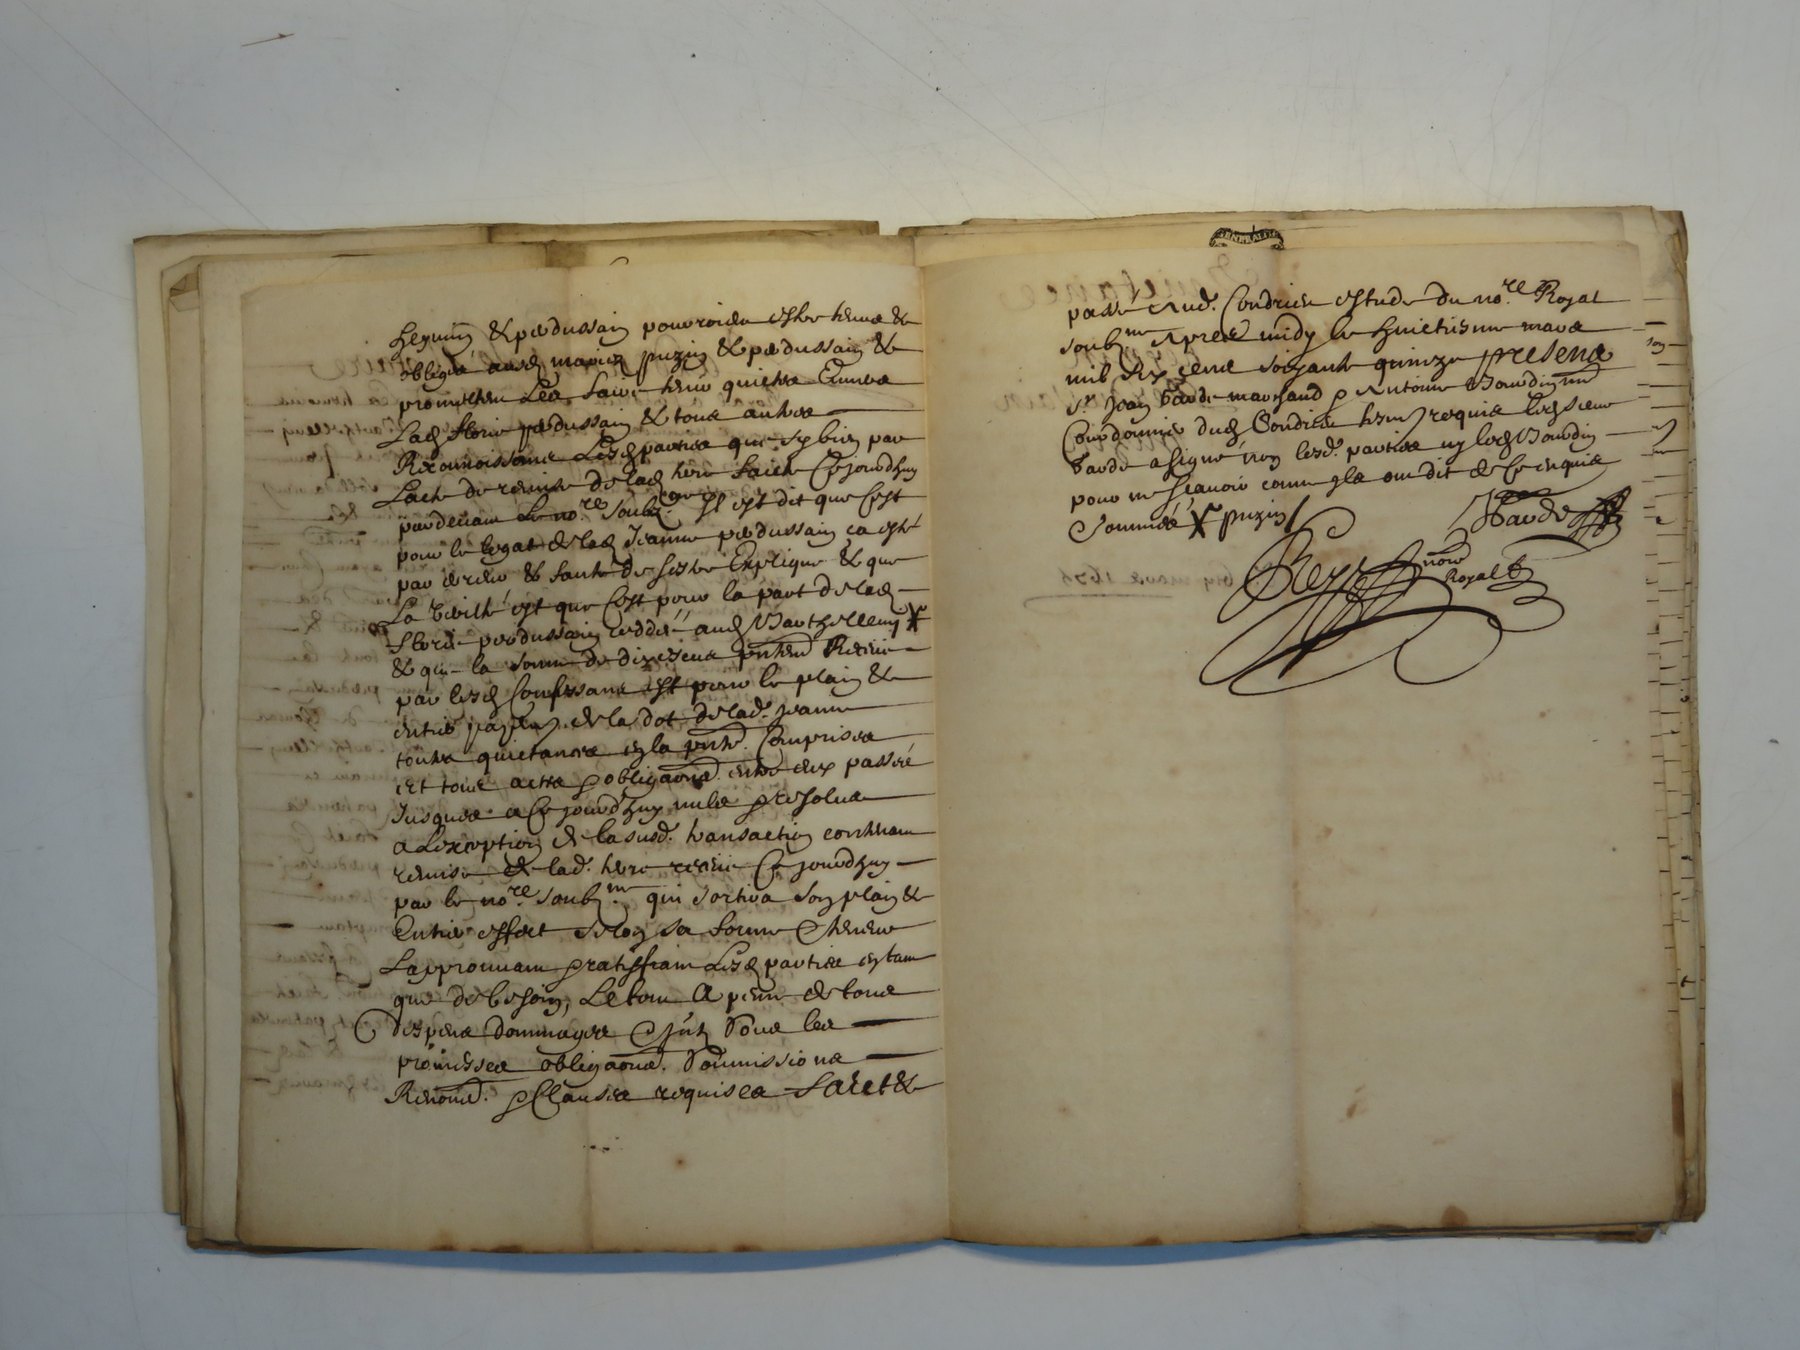 pourroien estre tenus &
obligés aud Puzin & perdussain &
promettem Les faire tenir quictes Enuers
Lad florie perdussain & tous autres
Reconnoissans Lesd parties que sy bien par
Lacte de remise de lad faicte Ce jourdhuy
pardeuant Le no.re soub.me Il est dit que Cest
pour le legat de lad Jeanne perdussain ça esté
par erreur & faute de sestre Expliqué & que
La verité est que Cest pour la part de lad
florie perdussain ceddée aud Barthellemy X
& que la somme de dix escus Receue
par lesd Confessans est pour le plain &
entier de la dot de lad. Jeanne
toutes quictances en la pnte. Comprises
et tous actes & obligaons. entre eux passés
Jusques a Ce jourdhuy nuls & resolus
a Lexception de la susd. transaction contenam
remise de lad. receue Ce jourdhuy
par le no.re soub.me qui sortira son plain &
Entier effect selon sa forme & teneur
Lapprouuam & ratiffiam Lesd parties en tam
que de besoin, Le tout A peine de tous
despens dommages & soubs les
promesses obligaons. soumissions
Renons. & Clauses requises Faict &
passé Aud. Condrieu estude du no.re Royal
soub.me Apres midy le huictiesme mars
mil six cens soixante quinze presens
s.r Jean Barde marchand & Antoine Bourdin
Cordonnier dud Condrieu requis led sieur
Barde a signé non lesd. parties ny led Bourdin
pour ne sçauoir comme Ils ont dit de Ce enquis
& sommés X Puzin /
Barde
Royal